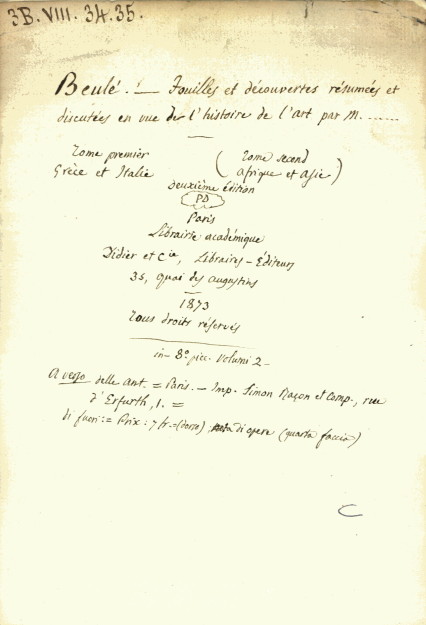 3B. VIII. 34. 35.
Beulé. — Fouilles et découvertes résumées et
discutées en vue de l'histoire de l'art par M. ......
Tome premier (Tome second
Grèce et Italie afrique et asie)
Deuxième édition
PD
Paris
Librairie académique
Didier et Cie, Libraires-Éditeurs
35, quai des augustins
1873
Tous droits réservés
in-8° picc. Volumi 2-
A verso delle Ant. = Paris. - Imp. Simon Raçon et Comp., rue
d'Erfurth, 1. =
di fuori: = Prix: 7 fr. = (dorso) di opere (quarta faccia)
C